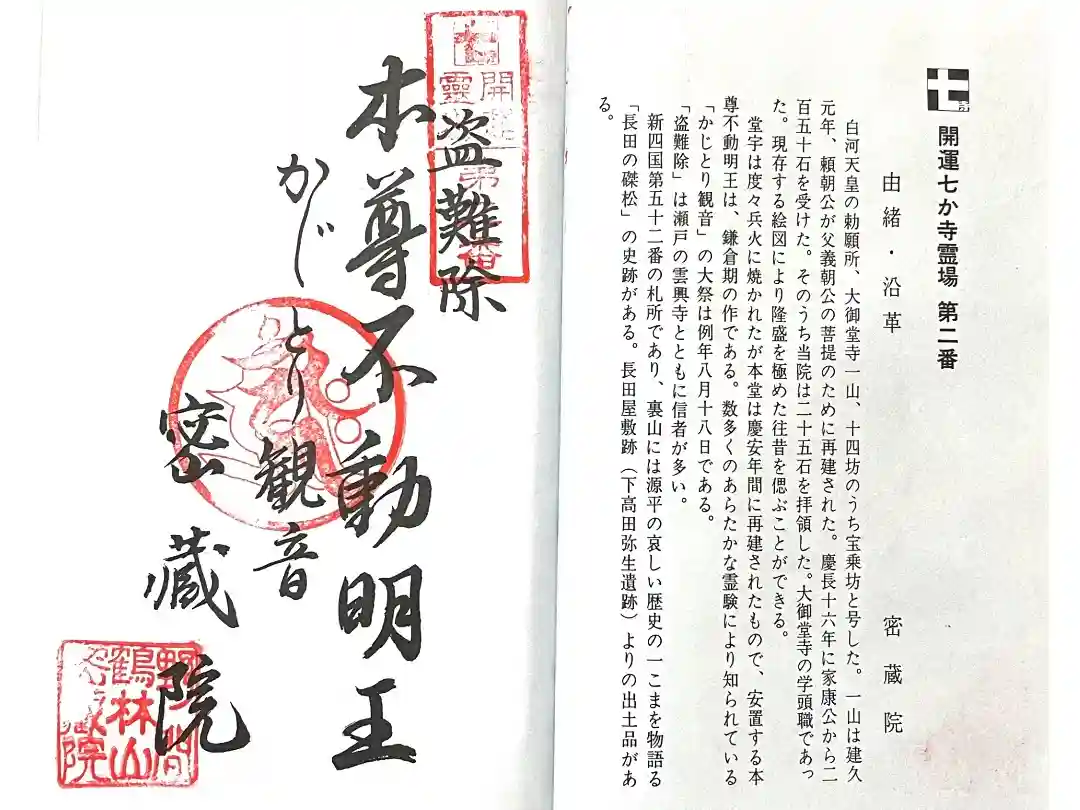 開運七か寺霊場 第二番
由緒・沿革 密蔵院
白河天皇の勅願所、大御堂寺一山、十四坊のうち宝乗坊と号した。一山は建久
元年、頼朝公が父義朝公の菩提のために再建された。慶長十六年に家康公から二
百五十石を受けた。そのうち当院は二十五石を拝領した。大御堂寺の学頭職であっ
た。現存する絵図により隆盛を極めた往昔を偲ぶことができる。
堂宇は度々兵火に焼かれたが本堂は慶安年間に再建されたもので、安置する本
尊不動明王は、鎌倉期の作である。数多くのあらたかな霊験により知られている
「かじとり観音」の大祭は例年八月十八日である。
「盗難除」は瀬戸の雲興寺とともに信者が多い。
新四国第五十二番の札所であり、裏山には源平の哀しい歴史の一こまを物語る
「長田の磔松」の史跡がある。長田屋敷跡（下高田弥生遺跡）よりの出土品があ
る。
盗難除
本尊不動明王
かじとり観音
密蔵院
野間
鶴林山